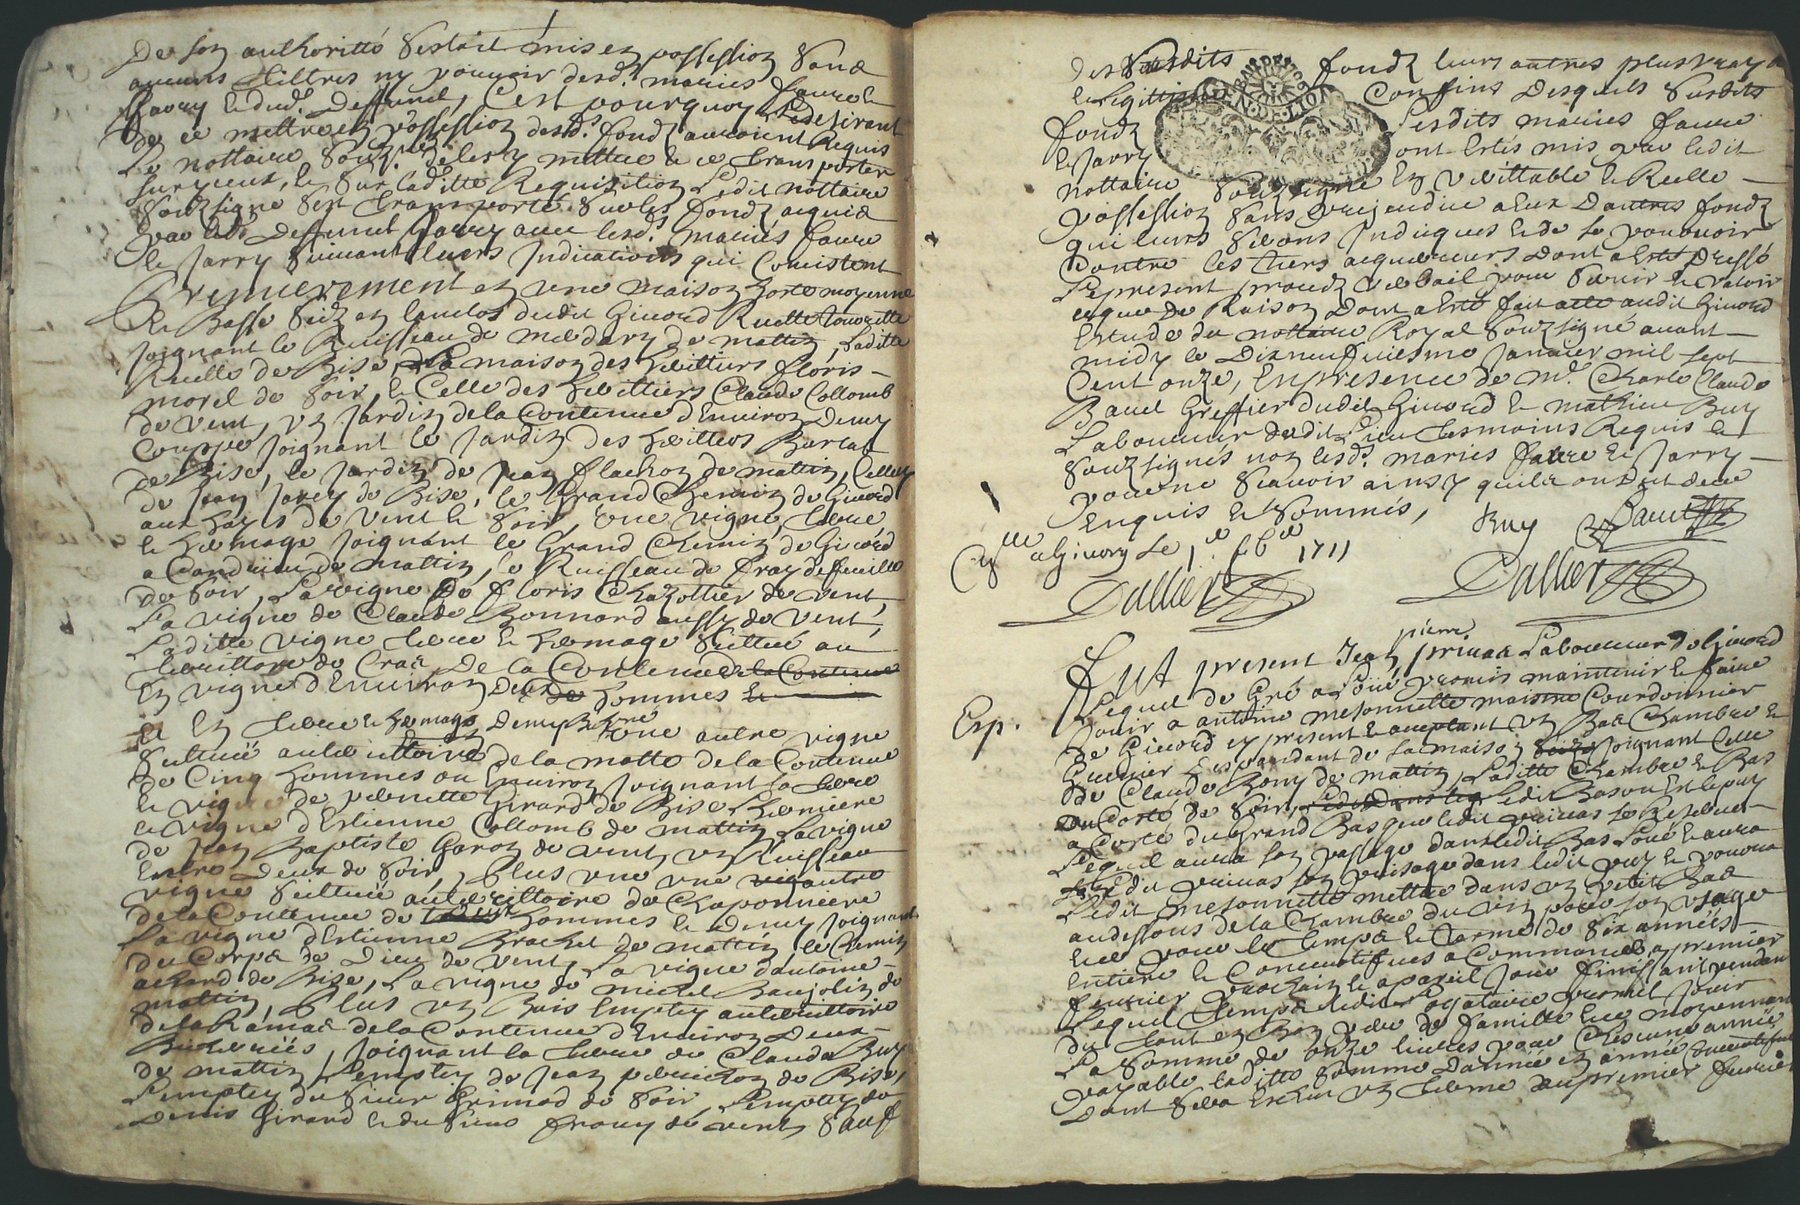 De son authoritté s'estoit mis en possession sans
aucuns tiltres ny pouvoir desd. mariés faure
Jarry et dud. deffunct, C'est pourquoy
de ce mettre en possession desd. fondz auroient Requis
Le nottaire souz.né de les y mettre et ce transporter
sur yceux, et sur laditte Requisition Ledit nottaire
souzsigné s'est transporté sur les fondz acquis
par led. deffunct Jarry avec lesd. mariés faure
et Jarry suivant leurs Indications qui Consistent
Premierement en une maison haute moyenne
et Basse size en lenclos dudit Givord Ruette
joignant le Ruisseau de merdary de mattin, Laditte
Ruelle de Bise, la maison des heritiers floris
morel de soir, et Celle des heritiers Claude Collomb
de vent, un Jardin de la Contenue d'Environ demy
Couppe joignant le Jardin des heritiers
de Bise, le Jardin de Jean flachon de mattin, Celluy
de Jean Jarey de Bise, le grand Chemin de Givord
aux hayes de vent et soir, une vigne, terre,
et hermage joignant le Grand Chemin de Givord
a Condrieu de mattin, le Ruisseau de fray de feuille
de soir, La vigne de floris Chazottier de vent,
La vigne de Claude Bonnard aussy de vent,
Laditte vigne terre et hermage scittué au
territtoire du Cras de la Contenue de la Contenue
En vigne d'Environ deux hommes et
et En terre et hermage demy
une autre vigne
scittuée au territtoire de la motte de la Contenue
de Cinq hommes ou Environ joignant la terre
et vigne de pernette Girard de Bise
la vigne d'Estienne Collomb de mattin La vigne
de Jean Baptiste Garon de vent, un Ruisseau
Entre deux de soir, Plus une une autre
vigne scittuée au territtoire de Chaponniere
de la Contenue de hommes et demy joignant
La vigne d'Estienne Brachet de mattin, le Chemin
du Corps de Dieu de vent, La vigne d'antoine
achard de Bise, La vigne de michel Baujolin de
mattin, Plus un Bois Emptey au territtoire
de la Ramas de la Contenue d'Environ deux
Bicherées, joignant la terre de Claude Buy
de mattin, L'emptey de Jean perrichon de Bise,
L'emptey du sieur Grimod de soir, L'emptey de
Denis Girard et du sieur de vent, sauf
desdits fondz leurs autres plus vrays
et Legittimes Confins desquels susdits
fondz Lesdits mariés faure
et Jarry ont Estés mis par ledit
nottaire souzsigné En verittable et Reelle
possession sans prejudice a Eux d'autres fondz
qui leurs seront Indiqués et de se pourvoir
Contre les tiers acquereurs dont a Esté dressé
Le present procez verbail pour servir et valoir
ce que de Raison dont a Esté fait acte audit Givord
Estude du nottaire Royal souzsigné avant
midy le Dixneufviesme Janvier mil sept
Cent onze, En presence de me. Charle Claude
Bauet Greffier dudit Givord et mathieu Buy
Laboureur dudit Lieu tesmoins Requis et
souzsignés non lesd. mariés faure et Jarry
pour ne scavoir ainsy quils ont dit de ce
enquis et sommés,
Buy Bauet
Con.llé a Givors le 1.er fb.er 1711
Dallier Dallier
pierre
Fut present Jean privas Laboureur de Givord
Esp. Lequel de Gré a Loüé promis maintenir et faire
Jouir a antoine mesonnette maistre Courdonnier
de Givord cy present et aceptant un Bas Chambre et
Grenier despendant de sa maison joignant Celle
de Claude Bony de mattin, Laditte Chambre et Bas
du Costé de soir, ledit Bas ou Est le puy
a Costé du Grand Bas que ledit privas se Reserve
Lequel aura son passage dans ledit Bas Loué et aura
Ledit privas son puisage dans ledit puy et pourra
Ledit mesonnette mettre dans un petit Bas
audessous de la Chambre du vin pour son usage
ce pour le temps et terme de six années
Entiere et Consecutifves a Commancer au premier
fevrier prochain et a pareil jour finissant pendant
Lequel temps ledit Locataire promet jouir
du tout en Bon pere de famille ce moyennant
La somme de onze livres pour Chescune année
payable laditte somme d'année en année
dont sera Escheu un terme au premier fevrier